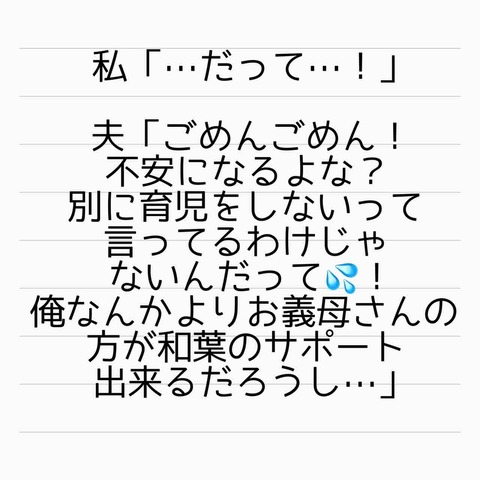 私「…だって…！」
夫「ごめんごめん！
不安になるよな？
別に育児をしないって
言ってるわけじゃ
ないんだって💦！
俺なんかよりお義母さんの
方が和葉のサポート
出来るだろうし…」